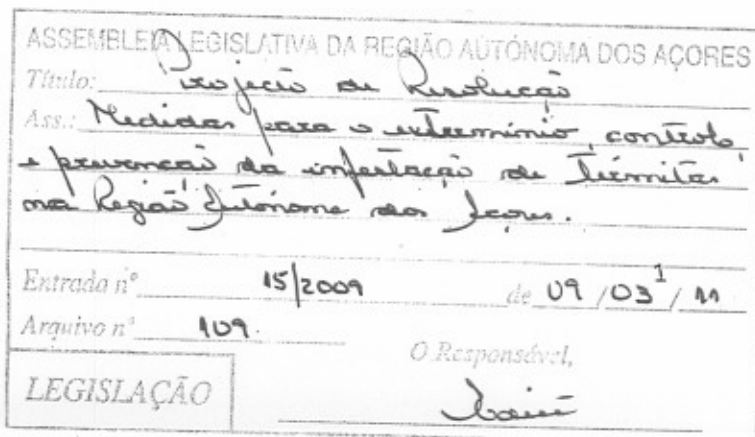 ASSEMBLEIA LEGISLATIVA DA REGIÃO AUTÓNOMA DOS AÇORES
Título: Projecto de Resolução
Ass.: Medidas para o extermínio, controlo,
e prevenção da infestação de Térmitas
na Região Autónoma dos Açores.
Entrada nº 15/2009 de 09/03/11
Arquivo nº 109.
O Responsável,
LEGISLAÇÃO